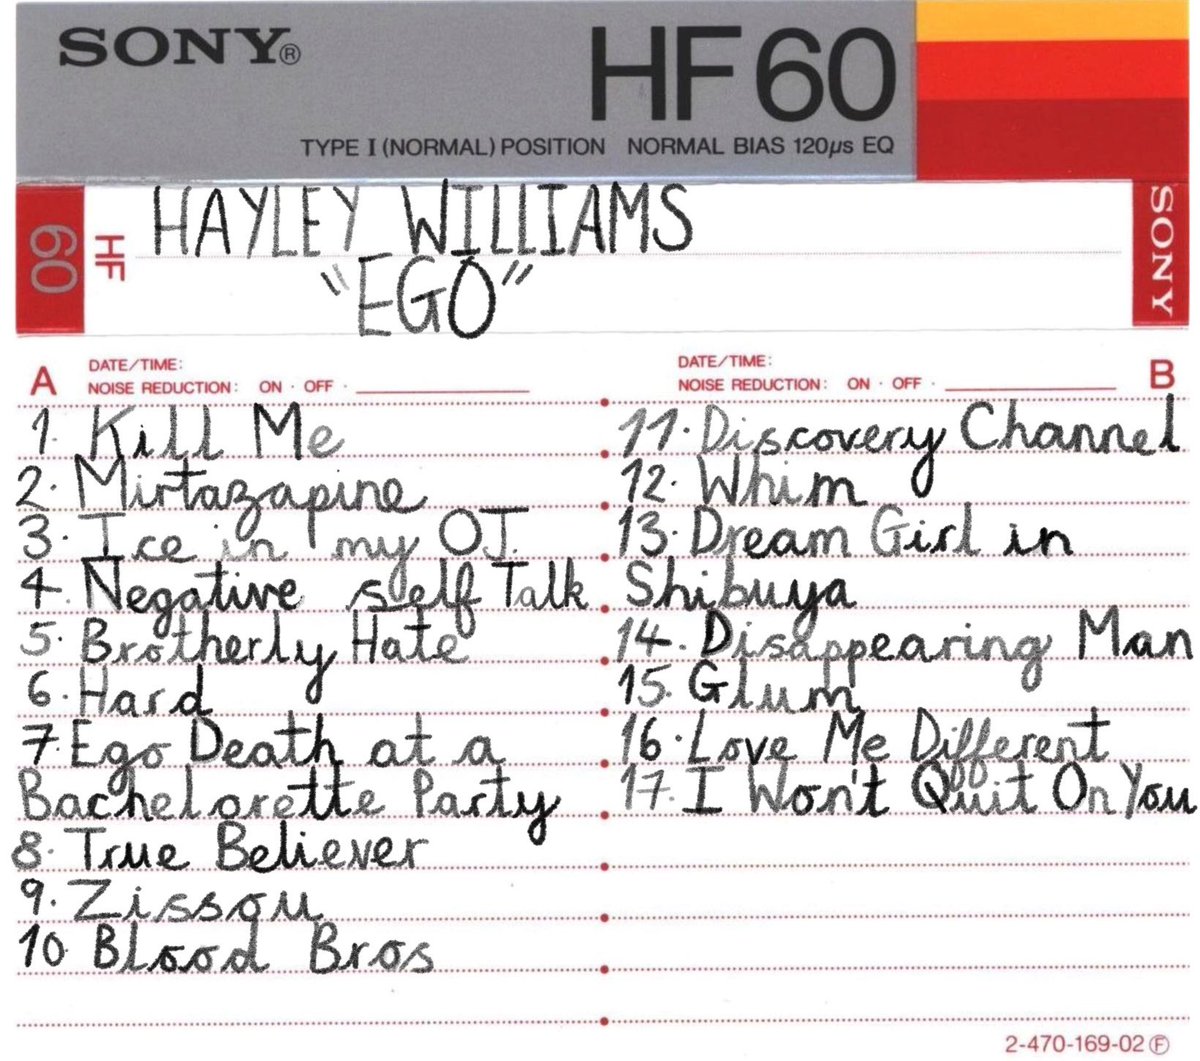 SONY®
HF 60
TYPE I (NORMAL) POSITION NORMAL BIAS 120µs EQ
60
HF
HAYLEY WILLIAMS
"EGO"
SONY
A
DATE/TIME:
NOISE REDUCTION: ON · OFF ·
1. Kill Me
2. Mirtazapine
3. Ice in my OJ.
4. Negative self Talk
5. Brotherly Hate
6. Hard
7. Ego Death at a
Bachelorette Party
8. True Believer
9. Zissou
10. Blood Bros
DATE/TIME:
NOISE REDUCTION: ON · OFF ·
B
11. Discovery Channel
12. Whim
13. Dream Girl in
Shibuya
14. Disappearing Man
15. Glum
16. Love Me Different
17. I Won't Quit On You
2-470-169-02 Ⓕ